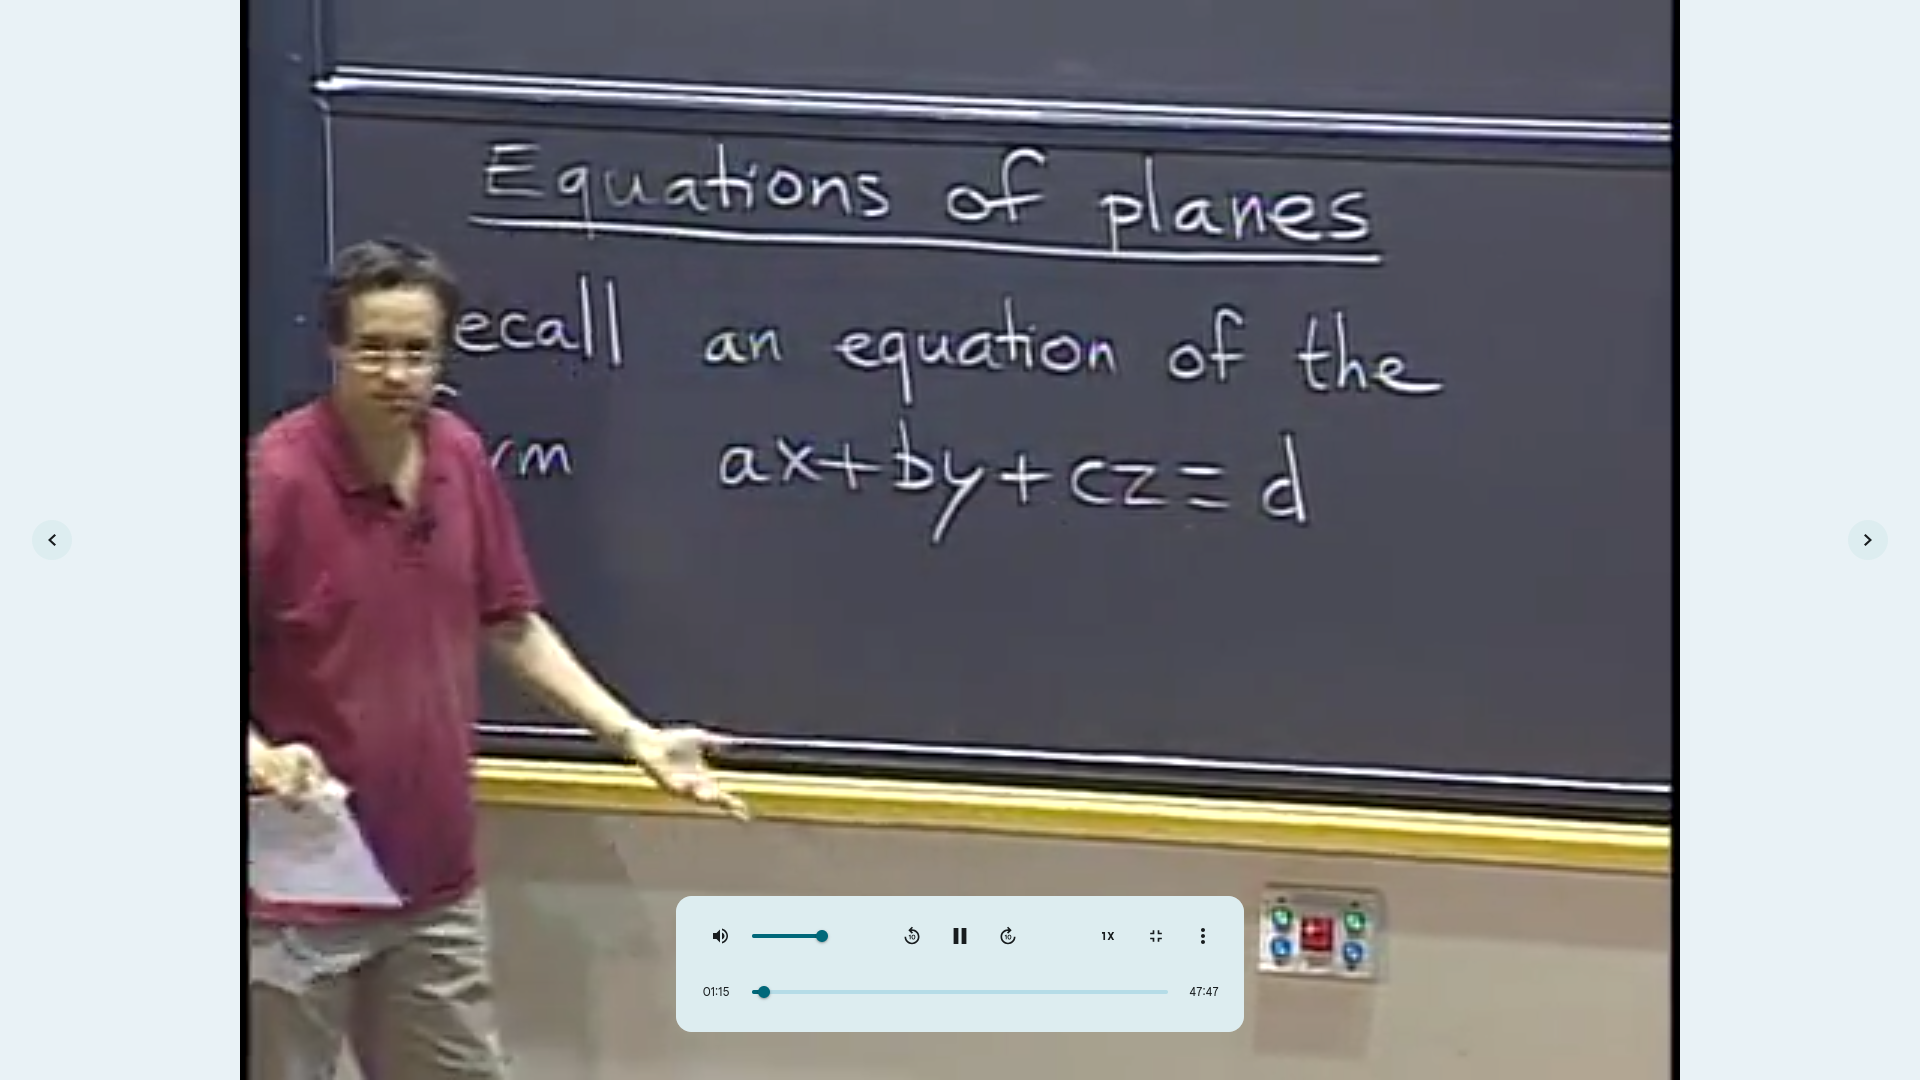 Equations of planes
ecall an equation of the
rm ax+by+cz=d
10 10 1X
01:15 47:47